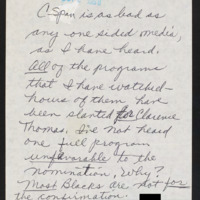 C-Span is as bad as
any one sided media,
as I have heard.
All of the programs
that I have watched-
hours of them have
been slanted for Clarence
Thomas. I've not heard
one full program
unfavorable to the
nomination, Why?
Most Blacks are not for
the confirmation.